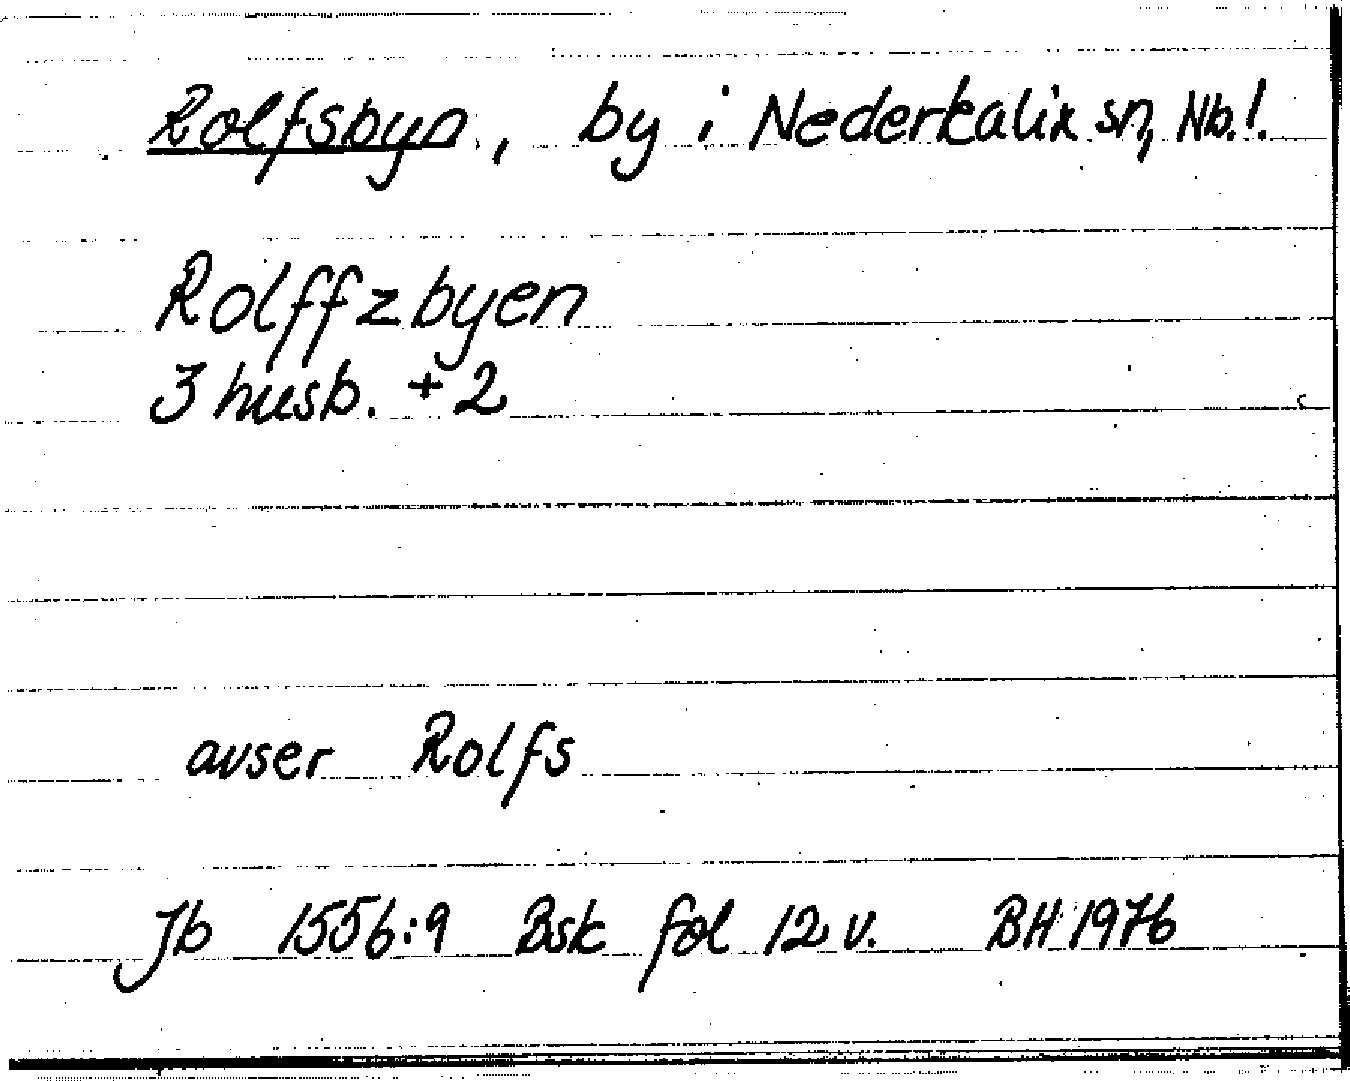 Rolfsbyn, by i Nederkalix sn, Nb. l.
Rolffzbyen
3 husb. + 2
avser Rolfs
Jb 1556:9 Bsk fol 12 v. BH 1976